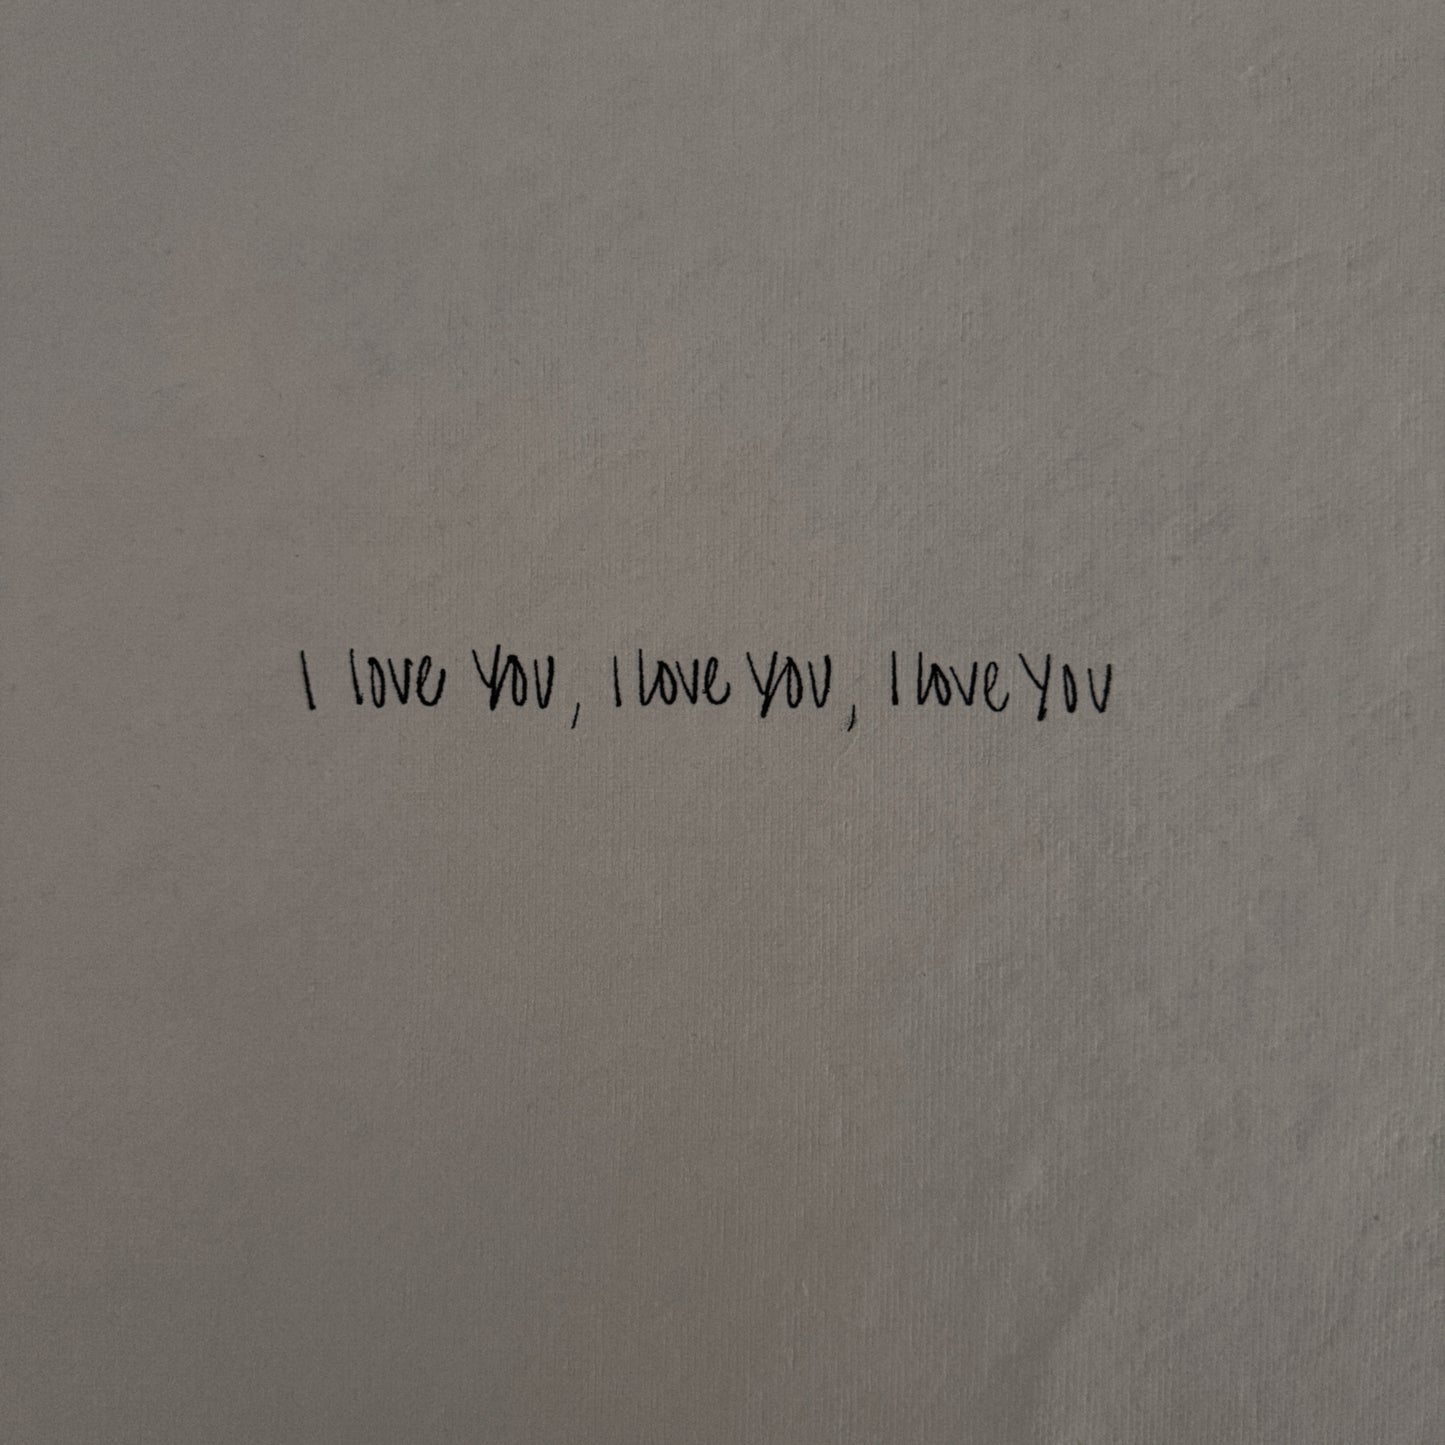 I love you, I love you, I love you